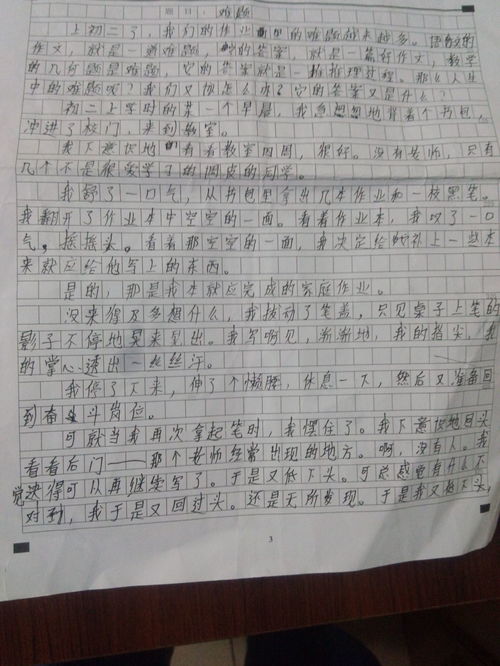 题目：难题
上初二了，我们的作业里的难题越来越多。语文的
作文，就是一道难题，它的答案，就是一篇好作文，数学
的几何题是难题，它的答案就是一推推理过程。那么人生
中的难题呢？我们又即怎么办？它的答案又是什么？
初二上学时的某一个早晨，我急怱怱地背着个书包
冲进了校门，来到教室。
我下意识地看看教室四周，很好。没有老师，只有
几个不是很爱学习的调皮的同学。
我舒了一口气，从书包里拿出几本作业和一枝黑笔。
我翻开了作业本中空空的一面。看着作业本，我叹了一口
气，摇摇头。看着那空空的一面，我决定给它补上一些本
来就应给他写上的东西。
是的，那是我本就应完成的家庭作业。
没来得及多想什么，我拔动了笔盖，只见桌子上笔的
影子不停地晃来晃出。我写啊见，渐渐地，我的指尖，我
的掌心透出一丝丝汗。
我停了下来，伸了个懒腰，休息一下，然后又准备回
到奋斗岗位。
可就当我再次拿起笔时，我愣住了。我下意识地回头
看看后门——那个教师经常出现的地方。啊，没有人。我
觉决得可以再继续写了。于是又低下头。可总感觉有什么不
对到，我于是又回过头。还是无所发现。于是我又低下头，
3